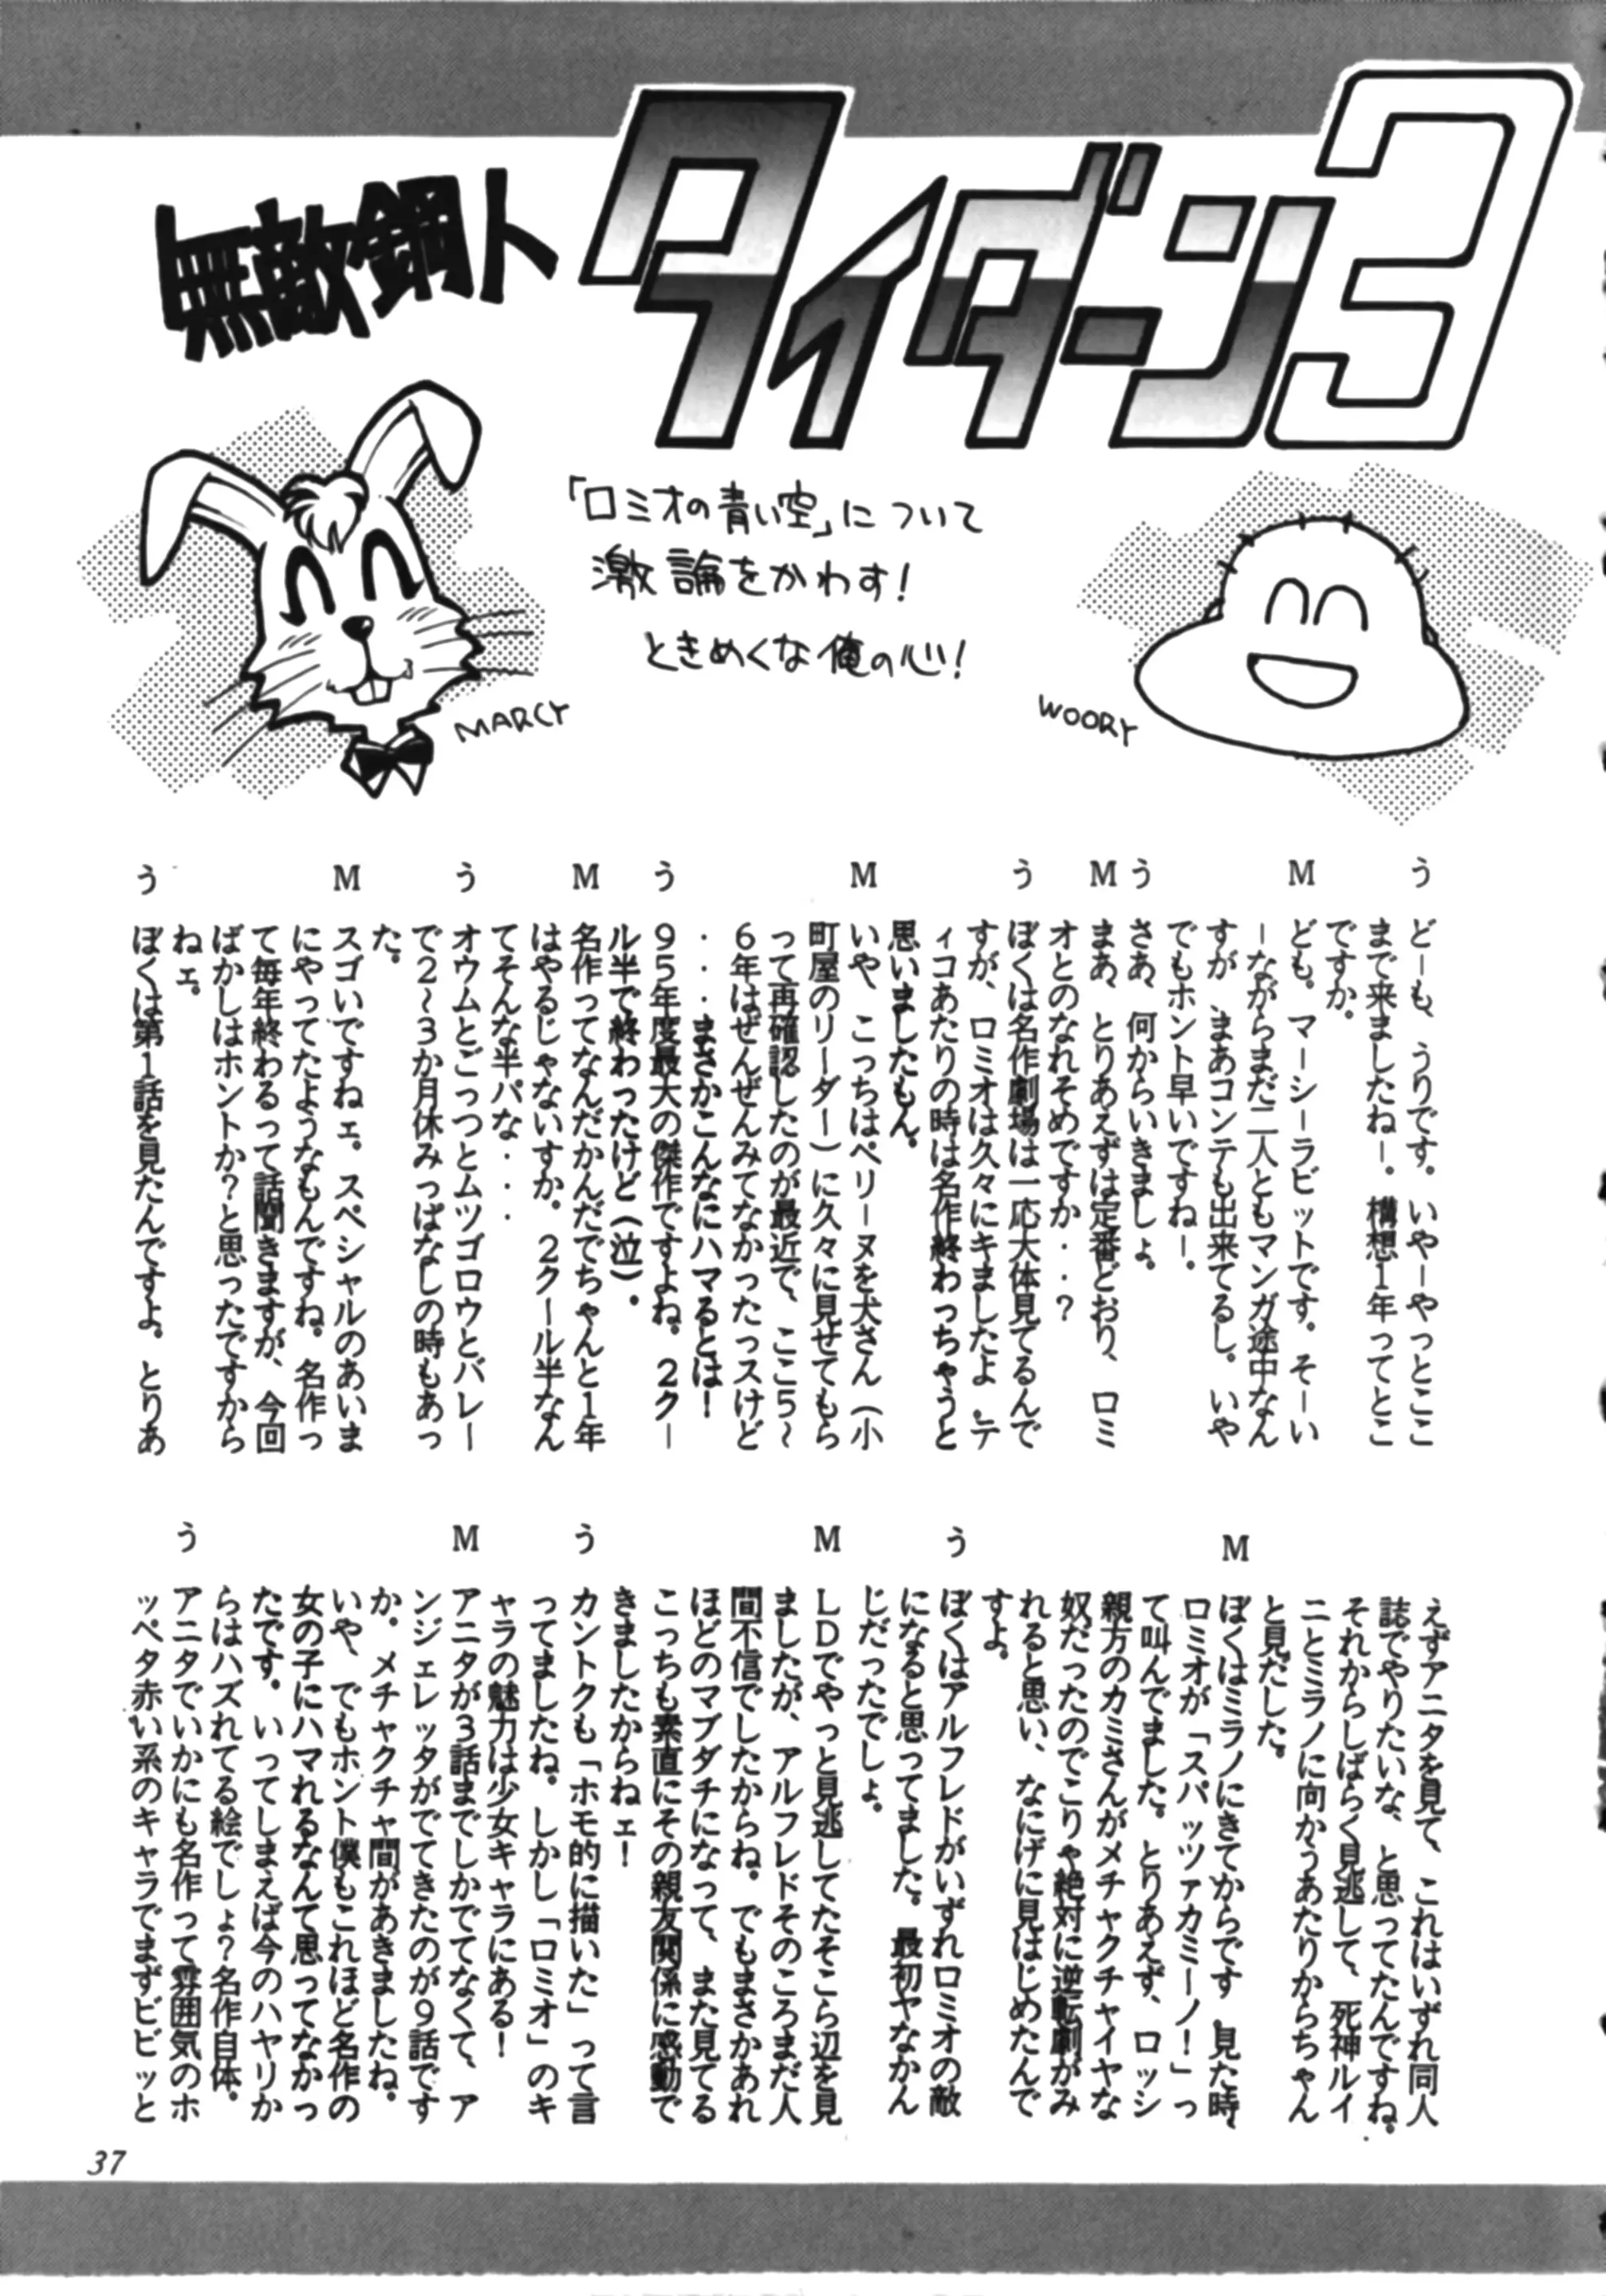 無敵鋼人
タイダン3
「ロミオの青い空」について
激論をかわす!
ときめくな俺の心!
MARCY
WOORY
う どーも、うりです。いやーやっとここ
まで来ましたねー。構想1年ってとこ
ですか。
M ども。マーシーラビットです。そーい
ーながらまだ二人ともマンガ途中なん
すが、まあコンテも出来てるし。いや
でもホント早いですねー。
う さあ、何からいきましょ。
M まあ、とりあえずは定番どおり、ロミ
オとのなれそめですか・・?
う ぼくは名作劇場は一応大体見てるんで
すが、ロミオは久々にキましたよ。テ
ィコあたりの時は名作終わっちゃうと
思いましたもん。
M いや、こっちはペリーヌを犬さん(小
町屋のリーダー)に久々に見せてもら
って再確認したのが最近で、ここ5〜
6年はぜんぜんみてなかったっスけど
・・・まさかこんなにハマるとは!
う 95年度最大の傑作ですよね。2クー
ル半で終わったけど(泣)。
M 名作ってなんだかんだでちゃんと1年
はやるじゃないすか。2クール半なん
てそんな半パな・・・
う オウムとごっつとムツゴロウとバレー
で2〜3か月休みっぱなしの時もあっ
た。
M スゴいですねェ。スペシャルのあいま
にやってたようなもんですね。名作っ
て毎年終わるって話聞きますが、今回
ばかしはホントか?と思ったですから
ねェ。
う ぼくは第1話を見たんですよ。とりあ
えずアニタを見て、これはいずれ同人
誌でやりたいな、と思ってたんですね。
それからしばらく見逃して、死神ルイ
ニとミラノに向かうあたりからちゃん
と見だした。
M ぼくはミラノにきてからです。見た時、
ロミオが「スパッツァカミーノ!」っ
て叫んでました。とりあえず、ロッシ
親方のカミさんがメチャクチャイヤな
奴だったのでこりゃ絶対に逆転劇がみ
れると思い、なにげに見はじめたんで
すよ。
う ぼくはアルフレドがいずれロミオの敵
になると思ってました。最初ヤなかん
じだったでしょ。
M LDでやっと見逃してたそこら辺を見
ましたが、アルフレドそのころまだ人
間不信でしたからね。でもまさかあれ
ほどのマブダチになって、また見てる
こっちも素直にその親友関係に感動で
きましたからねェ!
う カントクも「ホモ的に描いた」って言
ってましたね。しかし「ロミオ」のキ
ャラの魅力は少女キャラにある!
M アニタが3話までしかでてなくて、ア
ンジェレッタがでてきたのが9話です
か。メチャクチャ間があきましたね。
いや、でもホント僕もこれほど名作の
女の子にハマれるなんて思ってなかっ
たです。いってしまえば今のハヤリか
らはハズれてる絵でしょ?名作自体。
う アニタでいかにも名作って雰囲気のホ
ッペタ赤い系のキャラでまずビビッと
37